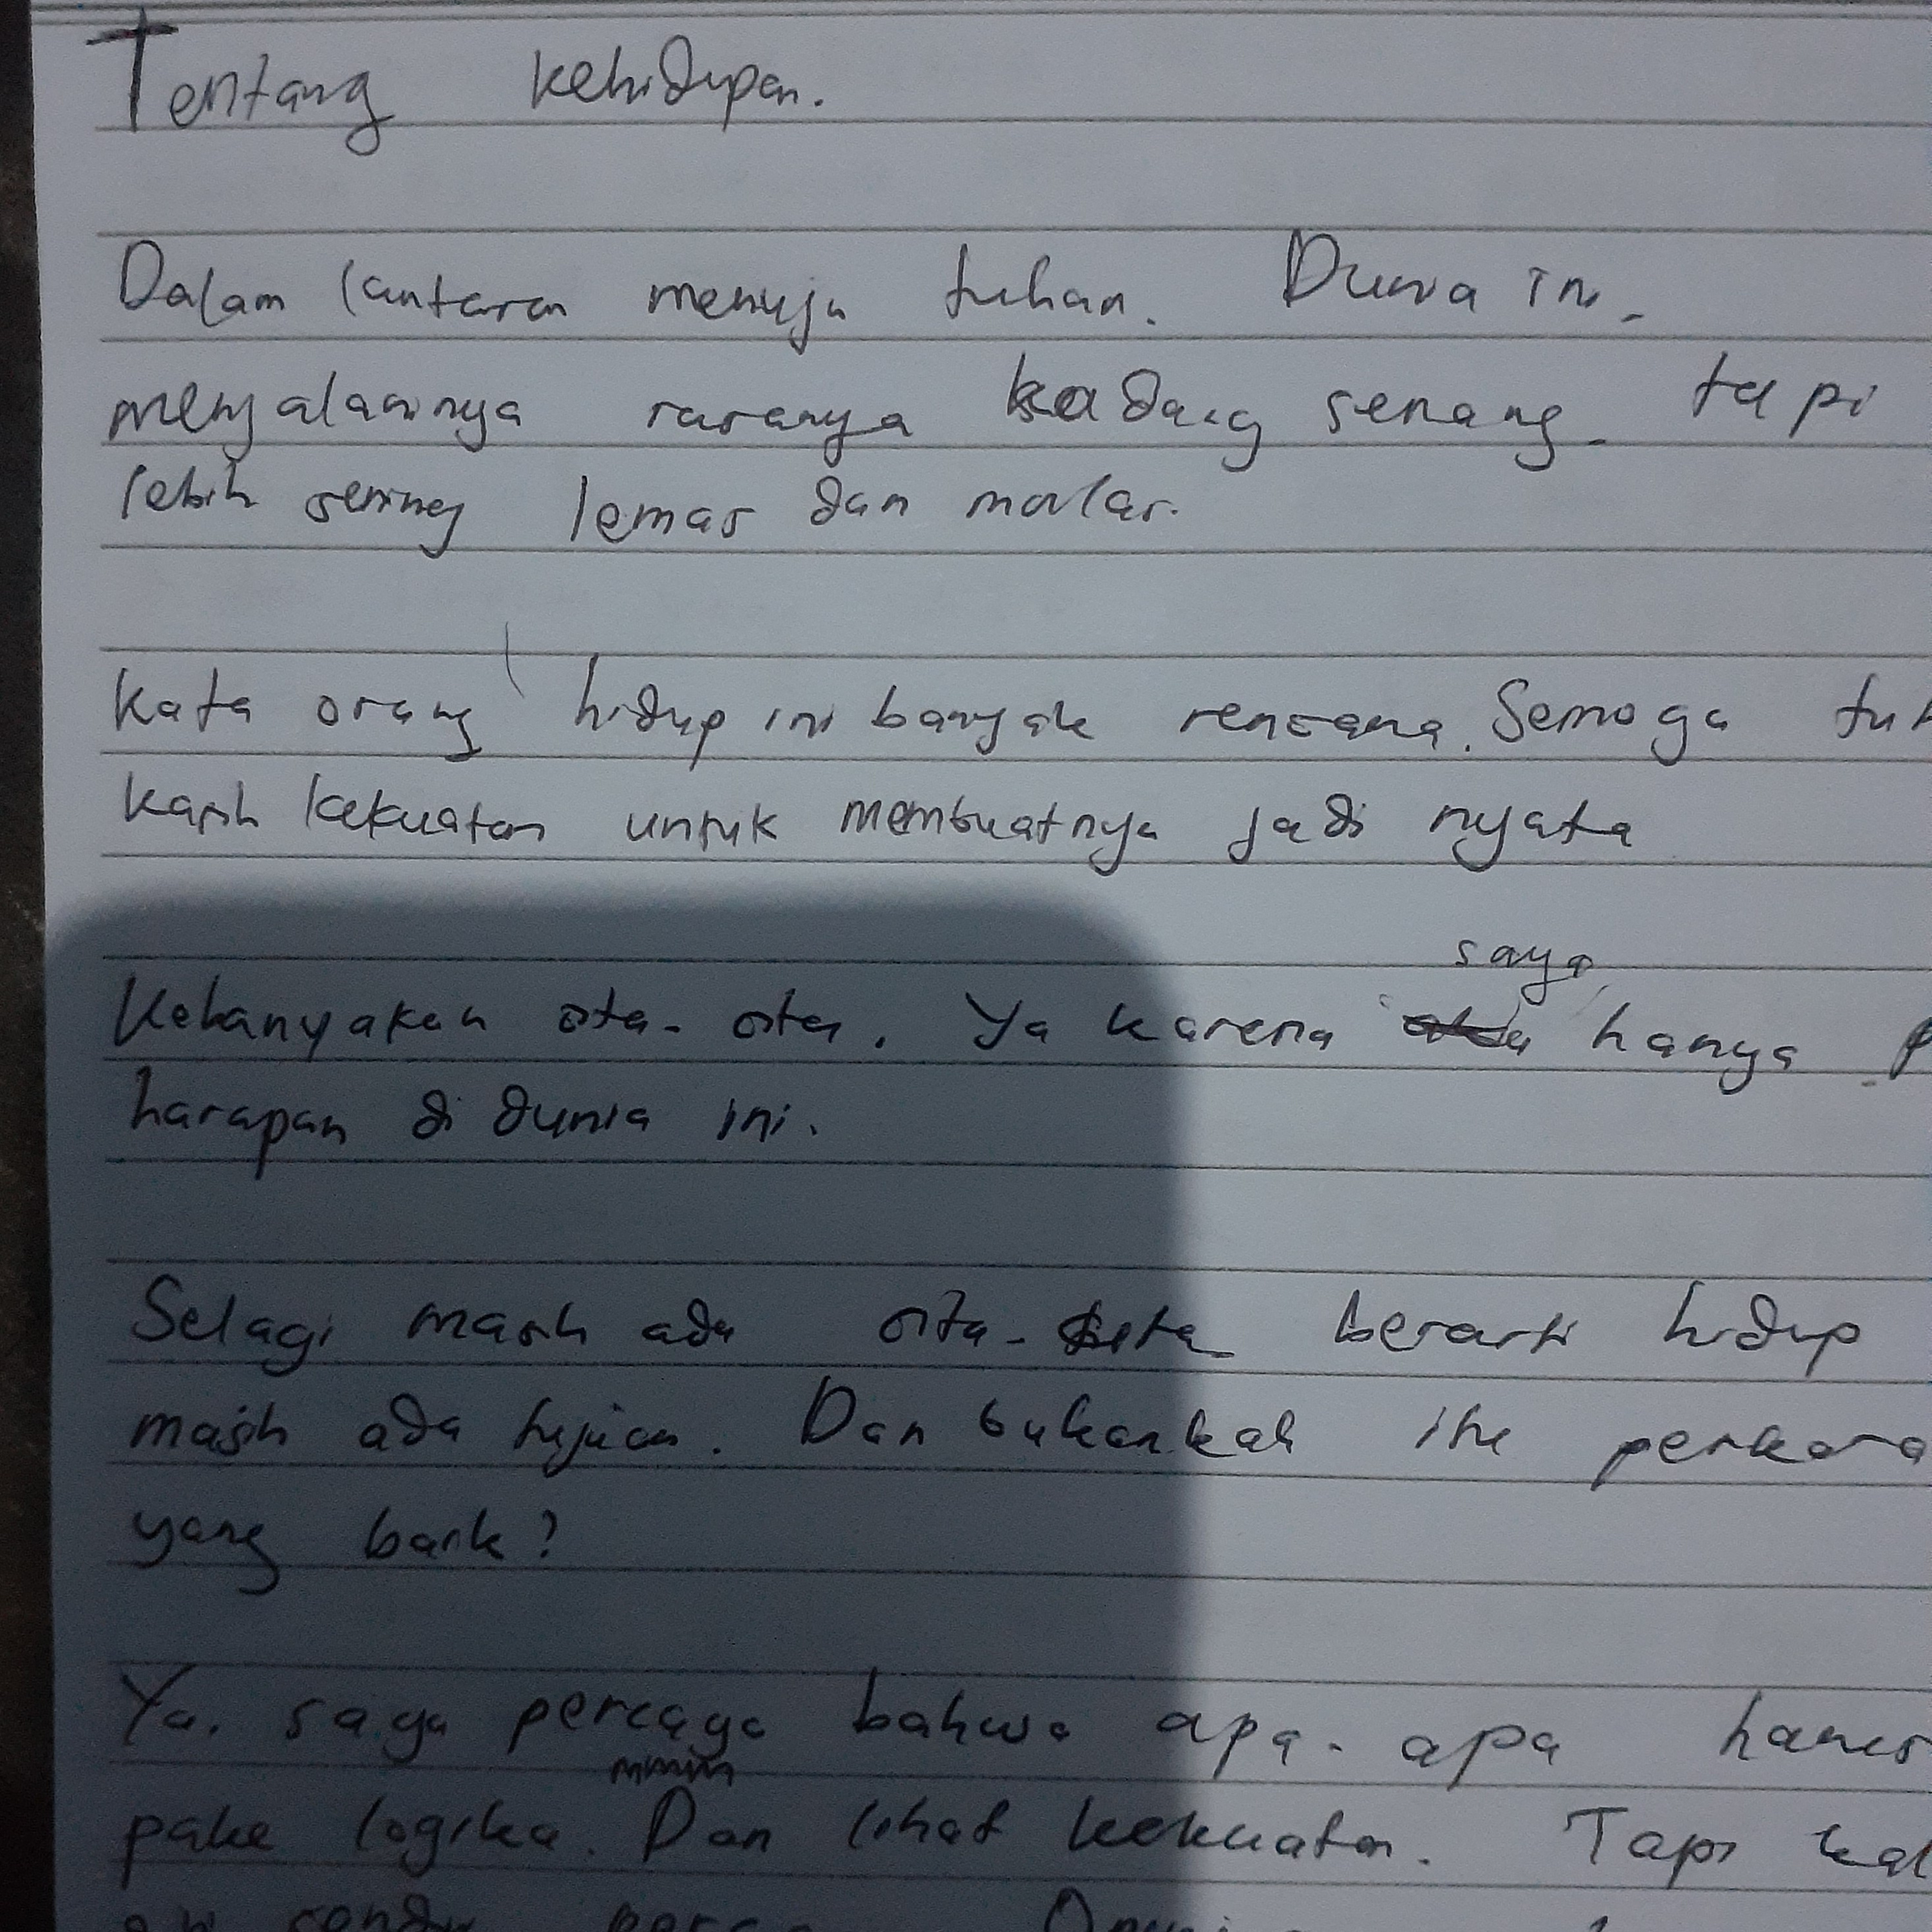 Tentang kehidupan.
Dalam lantaran menuju tuhan. Dunia ini.
menjalaninya rasanya kadang senang. tapi
lebih sering lemas dan malas.
kata orang hidup ini banyak rencana. Semoga
kasih kekuatan untuk membuatnya jadi nyata
Kebanyakan cita-cita. Ya karena saya hanya
harapan di dunia ini.
Selagi masih ada cita-cita berarti hidup
masih ada tujuan. Dan bukankah itu perkara
yang baik?
Ya. saya percaya bahwa apa-apa harus
pake logika. Dan lihat kekuatan. Tapi